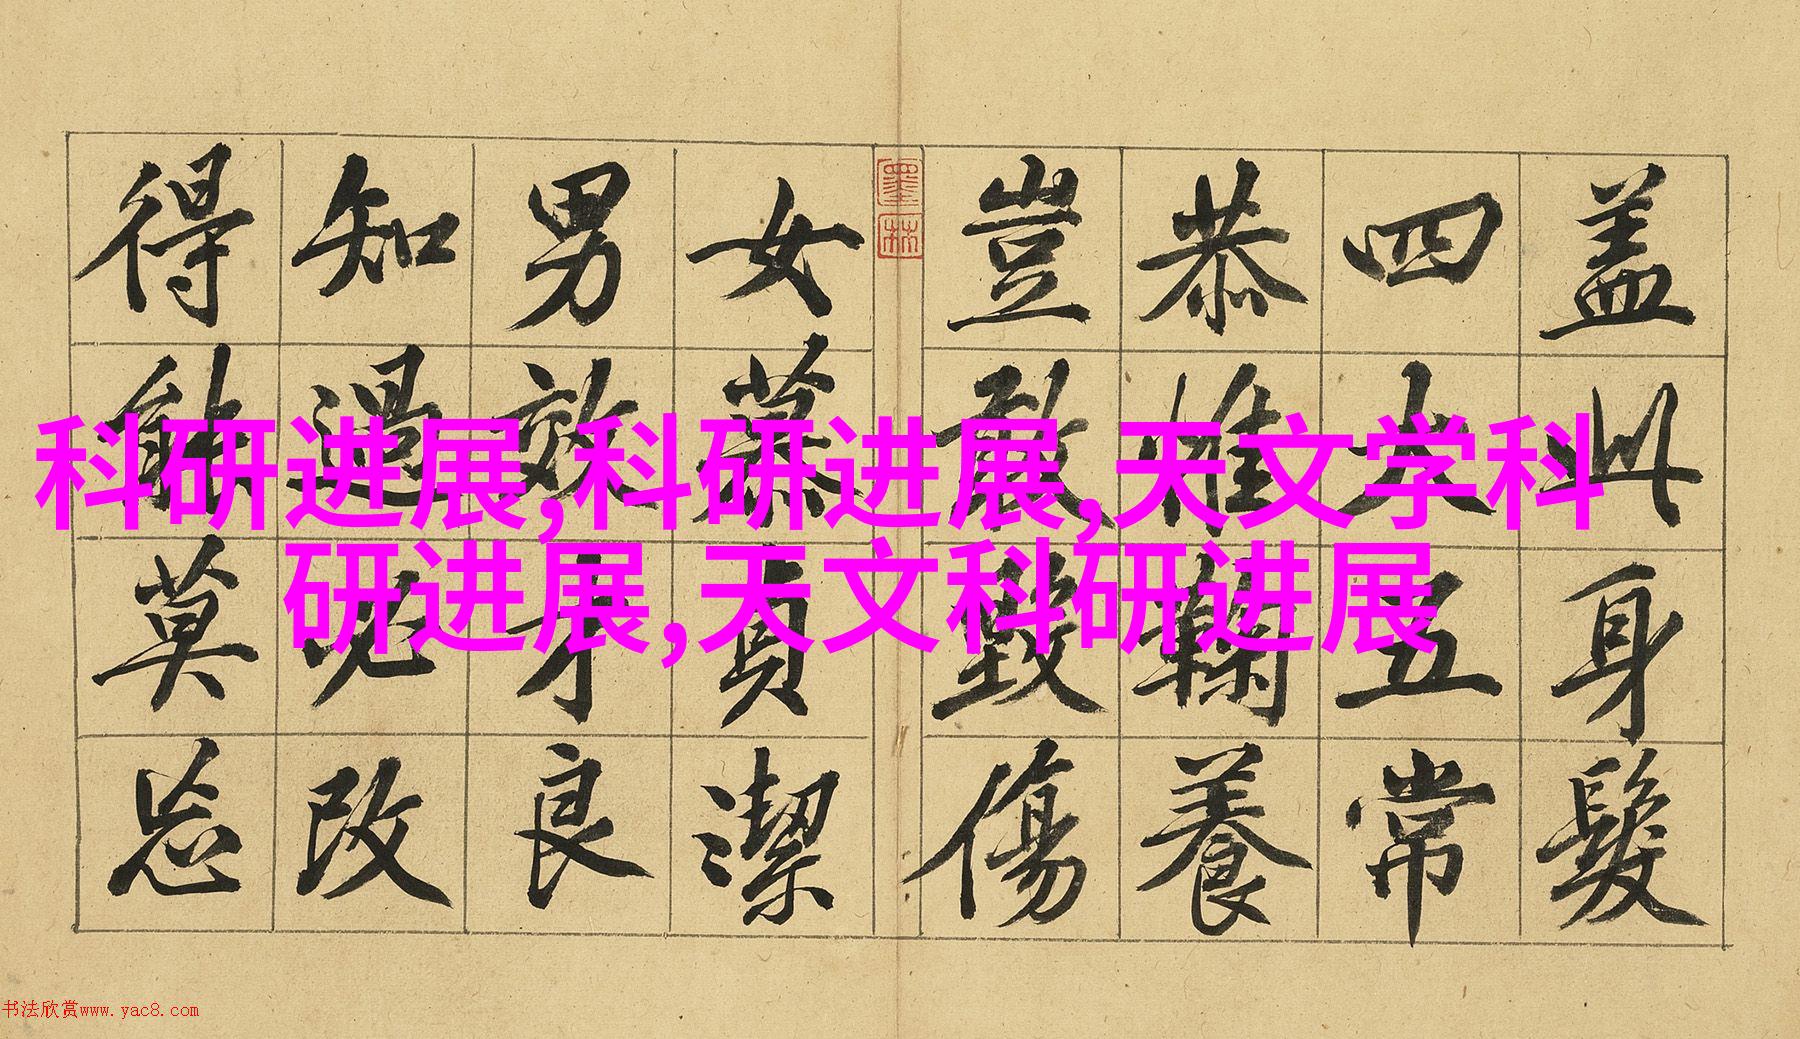 盖此身髮
四大五常
恭惟鞠養
豈敢毀傷
墨林
女慕貞潔
男效才良
知過必改
得能莫忘
科研进展,科研进展,天文学科
研进展,天文科研进展
书法欣赏www.yac8.com